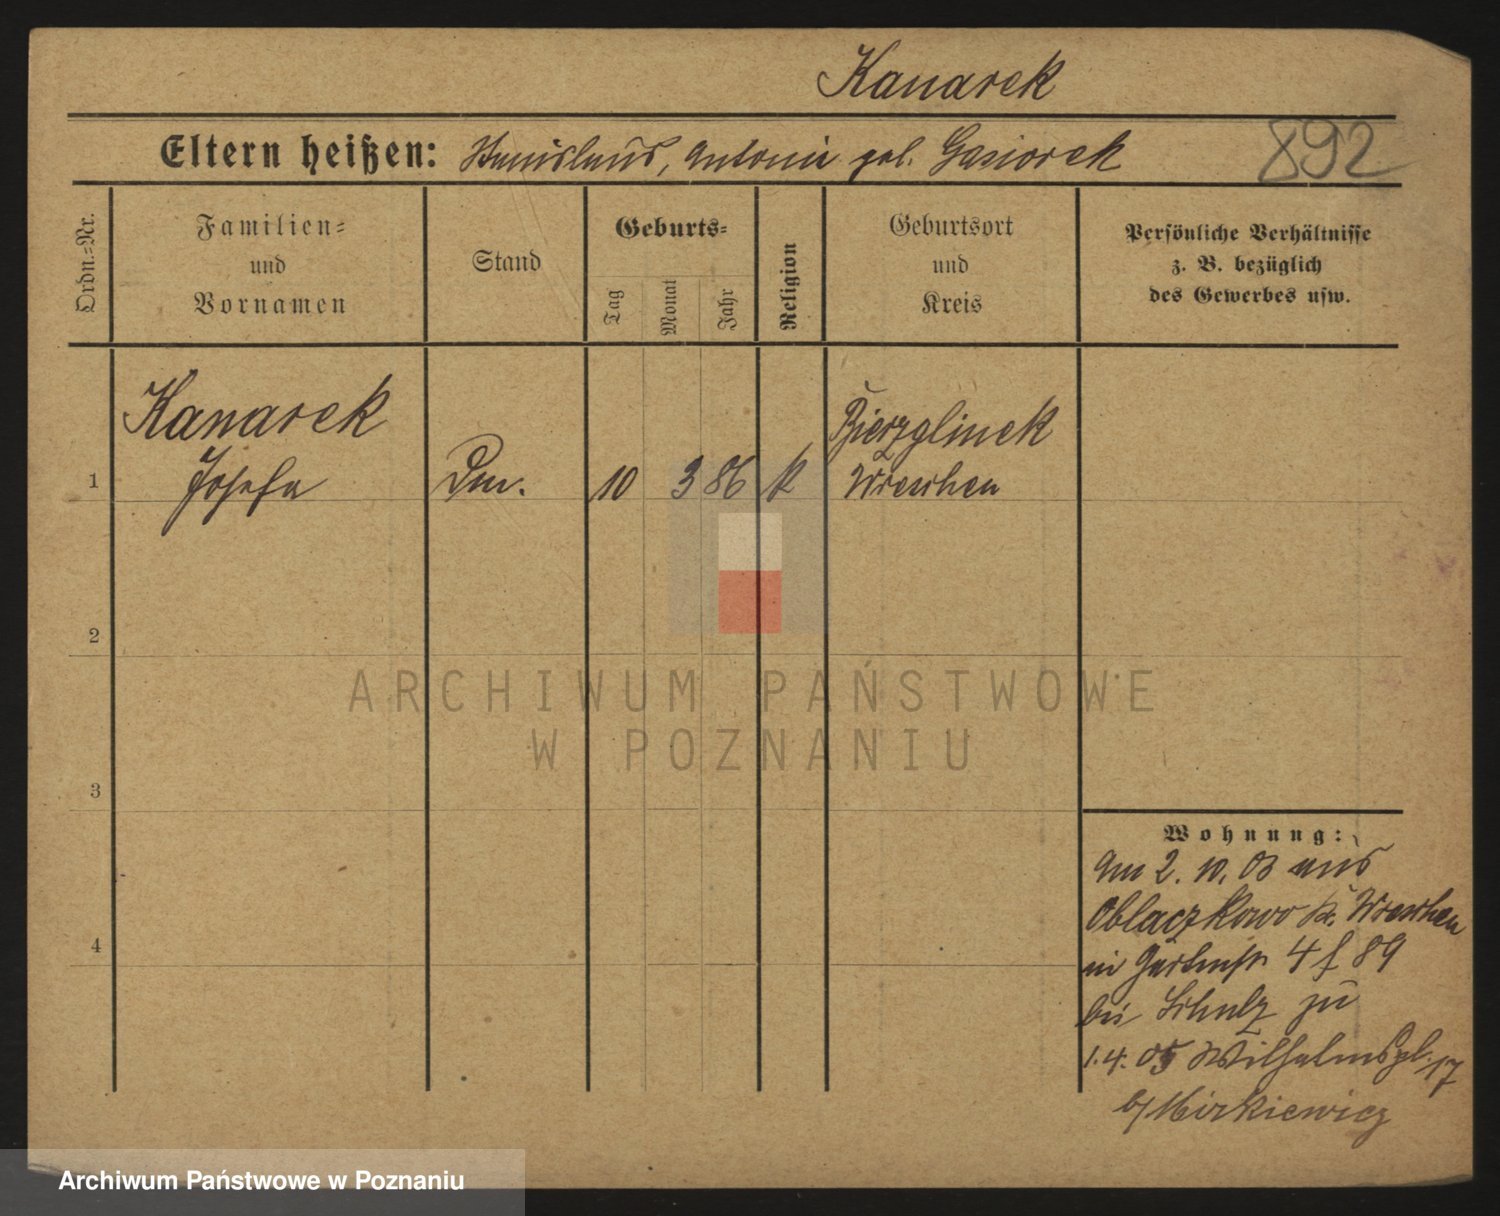 Kanarek
Eltern heißen: Stanislaus, Antonie geb. Gasiorek
892
Ordn.=Nr.
Familien=
und
Vornamen
Stand
Geburts=
Tag
Monat
Jahr
Religion
Geburtsort
und
Kreis
Persönliche Verhältnisse
z. B. bezüglich
des Gewerbes usw.
Kanarek
Bierzglinek
1
Josefa
10 3 86 k
Wreschen
2
ARCHIWUM PAŃSTWOWE
W POZNANIU
3
Wohnung:
Am 2. 10. 03 aus
Oblaczkowo Kr. Wreschen
4
in Gartenstr. 4 f 89
bei Schulz zu
1.4.05 Wilhelmspl. 17
b/ Mirkiewicz
Archiwum Państwowe w Poznaniu